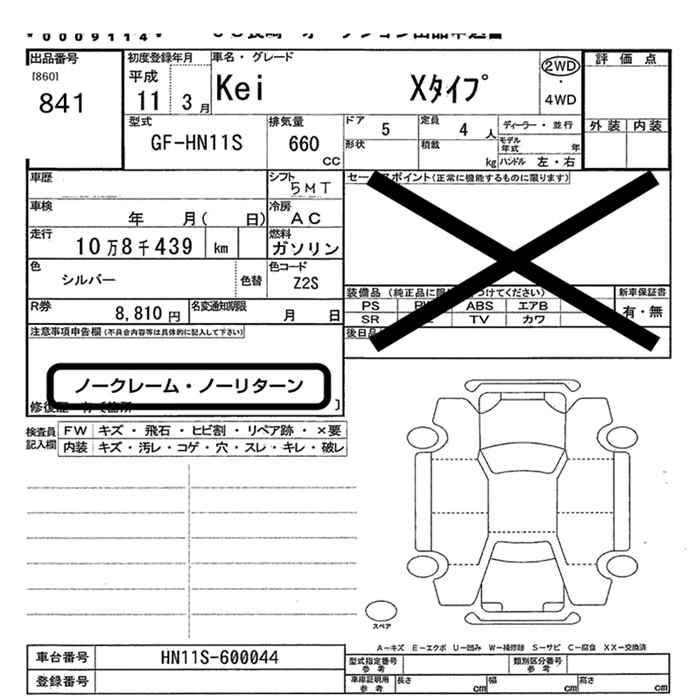 0009114 JU長崎 オークション出品申込書
出品番号 初度登録年月 車名・グレード 評価点
[860] 平成 Kei Xタイプ 2WD
841 11 3月 ・
4WD
型式 排気量 ドア 定員 ディーラー・並行 外装 内装
GF-HN11S 660 5 4人
CC 形状 積載 モデル年式 年
kg ハンドル 左・右
車歴 シフト セールスポイント(正常に機能するものに限ります)
5MT
車検 冷房
年 月( 日) AC
走行 燃料
10万8千439 km ガソリン
色 色替 色コード
シルバー Z2S
装備品 (純正品に限 つけてください) 新車保証書
R券 名変通知期限 PS ABS エアB 有・無
8,810円 月 日 SR TV カワ
注意事項申告欄(不具合内容等は具体的に記入して下さい) 後日品
ノークレーム・ノーリターン
修復歴
検査員 FW キズ ・ 飛石 ・ ヒビ割 ・ リペア跡 ・ ×要
記入欄 内装 キズ・汚レ・コゲ・穴・スレ・キレ・破レ
スペア
A-キズ E-エクボ U-凹み W-補修跡 S-サビ C-腐食 XX-交換済
車台番号 HN11S-600044 型式指定番号 参考 類別区分番号 参考
登録番号 車庫証明用 参考 長さ cm 幅 cm 高さ cm